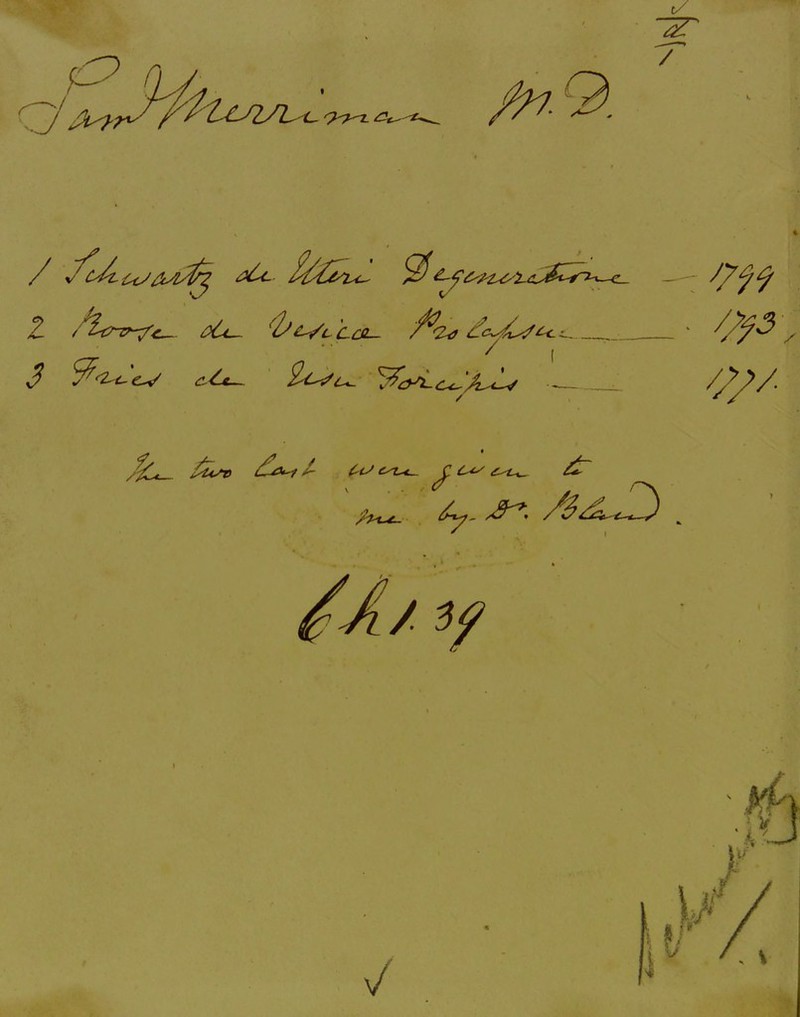 Saml Merriman M.D.
1 Schwartz de Uteri Degeneratione — 1799
2 Roose de Vesicæ Prolapsu — 1793,
3 Fries de Usu Forcipis — 1771.
The two last were given to
me by Dr. Bland.
39
Schwartz
1.